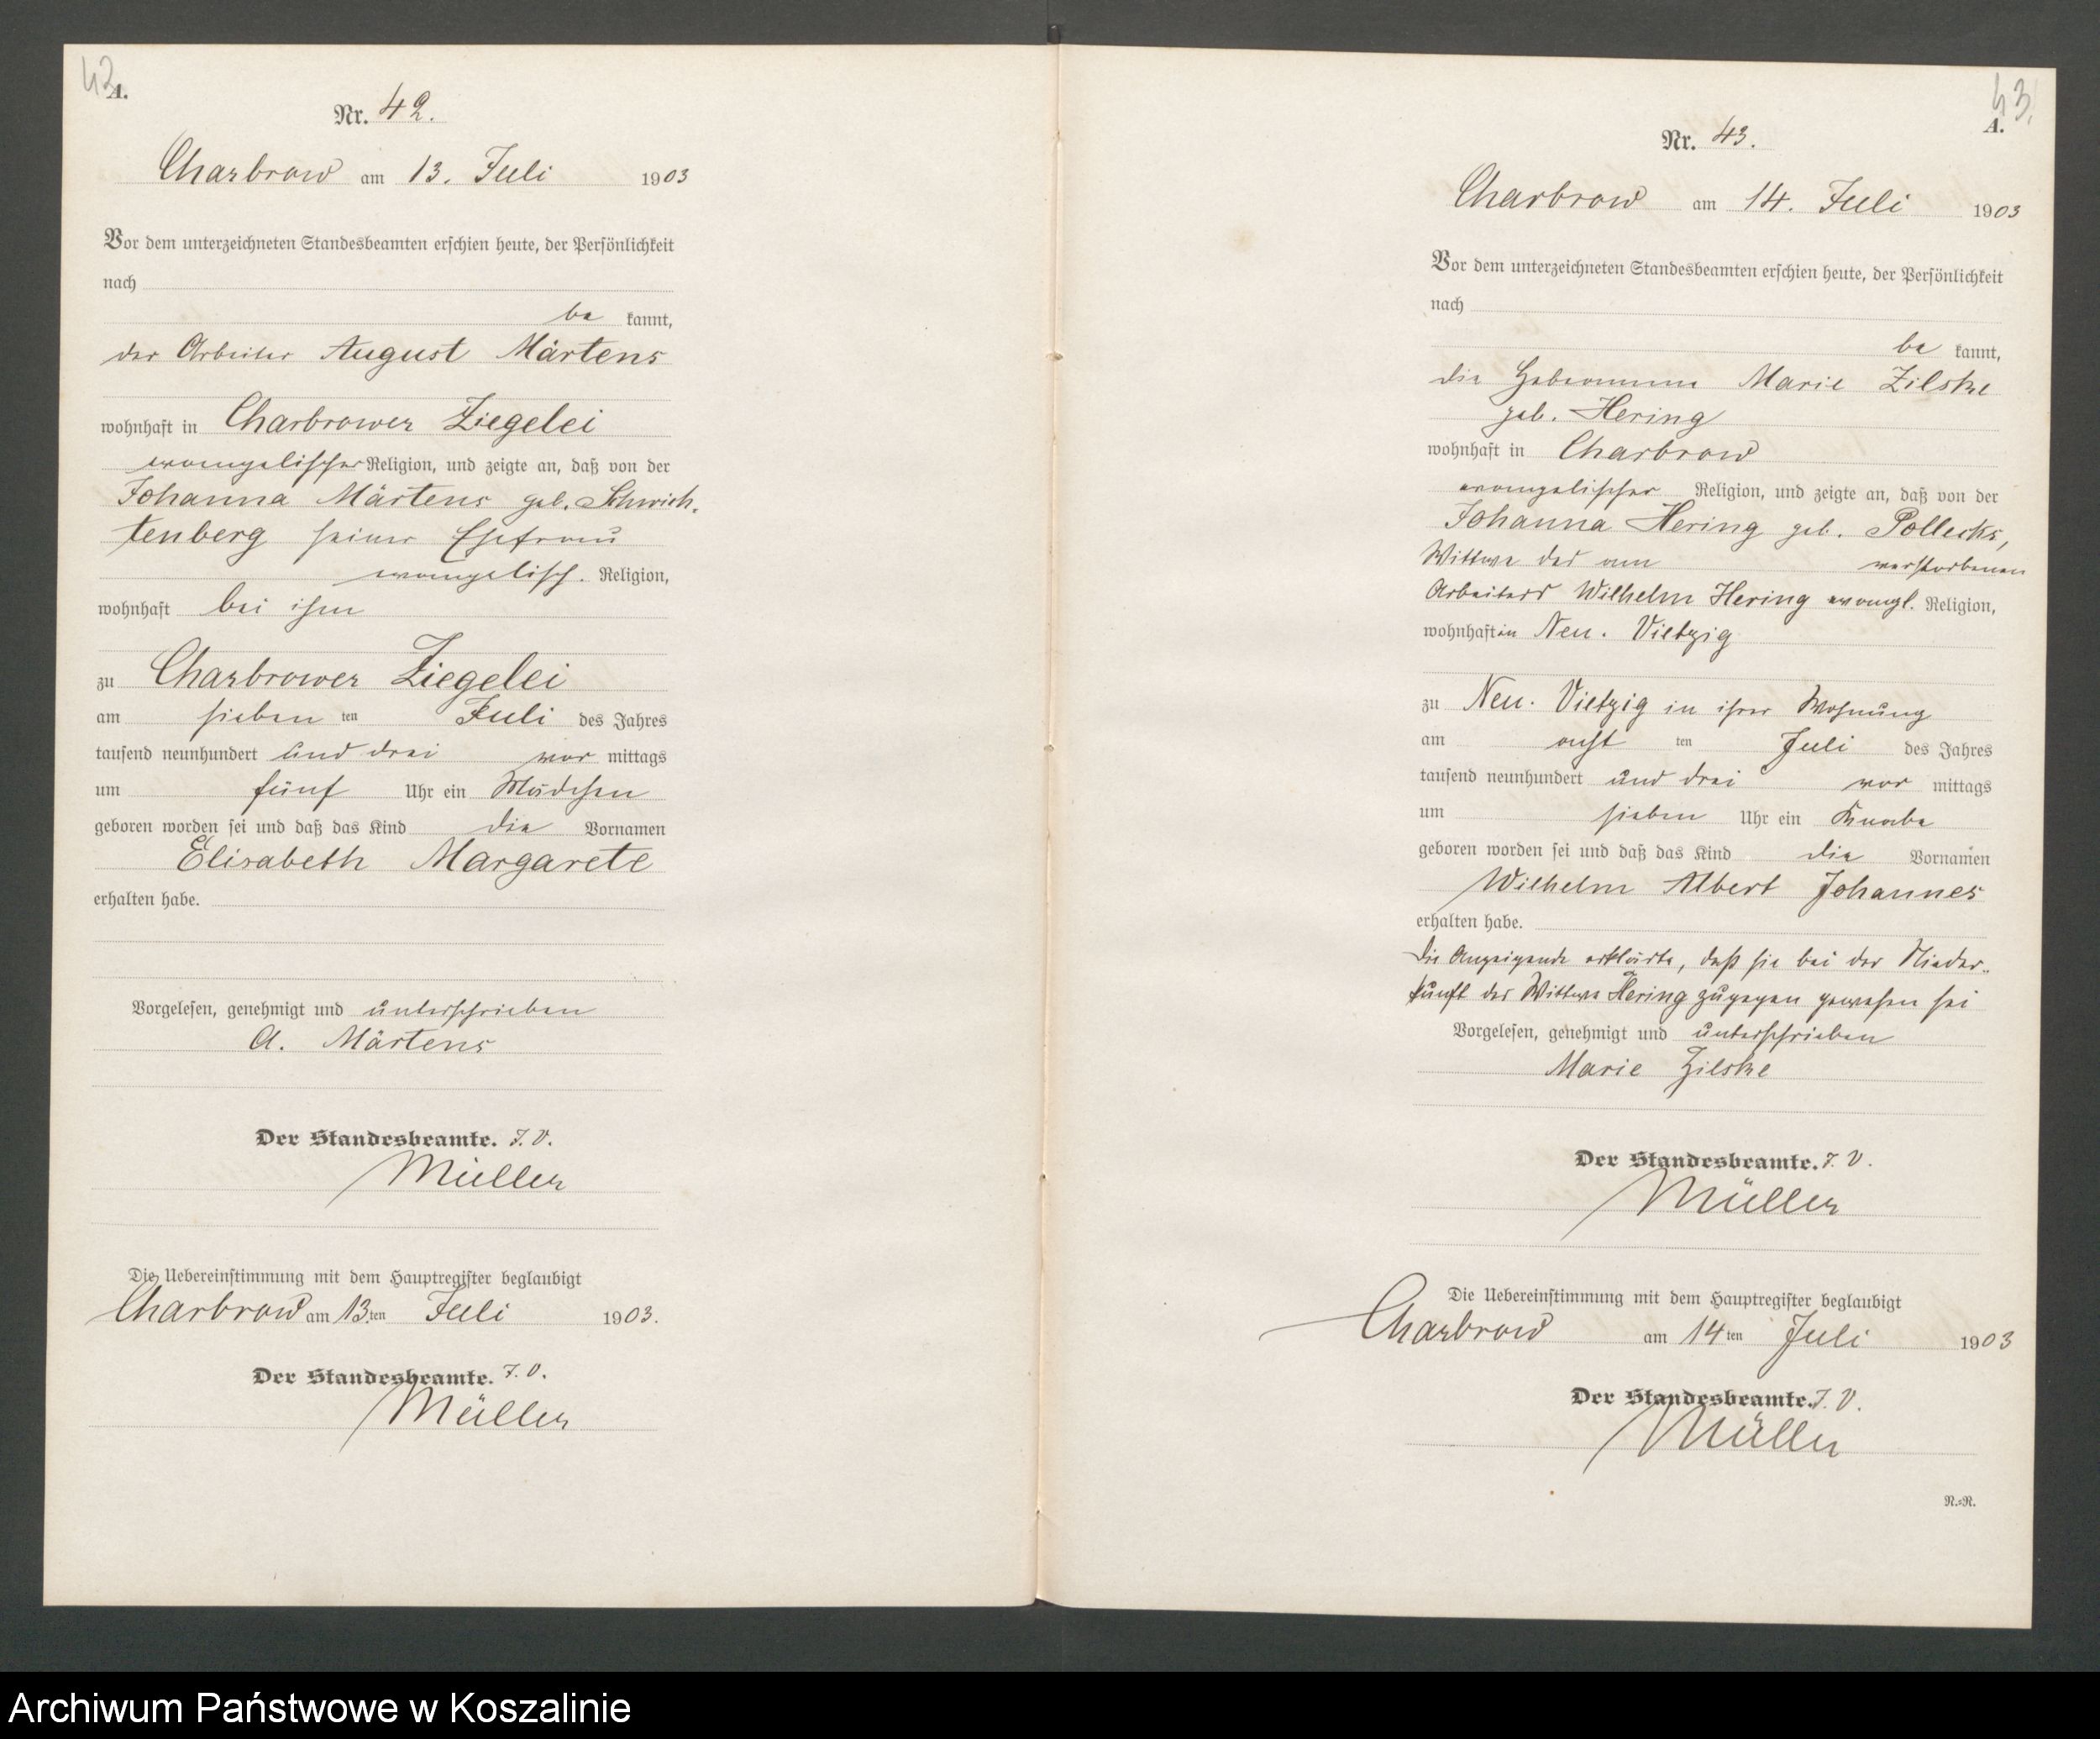 42
A.
Nr. 42.
Charbrow am 13. Juli 1903
Vor dem unterzeichneten Standesbeamten erschien heute, der Persönlichkeit
nach
be kannt,
der Arbeiter August Märtens
wohnhaft in Charbrower Ziegelei
evangelischer Religion, und zeigte an, daß von der
Johanna Märtens geb. Schwich-
tenberg seiner Ehefrau
evangelisch. Religion,
wohnhaft bei ihm
zu Charbrower Ziegelei
am sieben ten Juli des Jahres
tausend neunhundert und drei vor mittags
um fünf Uhr ein Mädchen
geboren worden sei und daß das Kind die Vornamen
Elisabeth Margarete
erhalten habe.
Vorgelesen, genehmigt und unterschrieben
A. Märtens
Der Standesbeamte. J. V.
Müller
Die Uebereinstimmung mit dem Hauptregister beglaubigt
Charbrow am 13.ten Juli 1903.
Der Standesbeamte. J. V.
Müller
43.
A.
Nr. 43.
Charbrow am 14. Juli 1903
Vor dem unterzeichneten Standesbeamten erschien heute, der Persönlichkeit
nach
be kannt,
die Hebeamme Marie Zilske
geb. Hering
wohnhaft in Charbrow
evangelischer Religion, und zeigte an, daß von der
Johanna Hering geb.
Wittwe des am verstorbenen
Arbeiters Wilhelm Hering evangl. Religion,
wohnhaft in Neu. Vietzig
zu Neu. Vietzig in ihrer Wohnung
am acht ten Juli des Jahres
tausend neunhundert und drei vor mittags
um sieben Uhr ein Knabe
geboren worden sei und daß das Kind die Vornamen
Wilhelm Albert Johannes
erhalten habe.
Die Anzeigende erklärte, daß sie bei der Nieder-
kunft der Wittwe Hering zugegen gewesen sei
Vorgelesen, genehmigt und unterschrieben
Marie Zilske
Der Standesbeamte. J. V.
Müller
Die Uebereinstimmung mit dem Hauptregister beglaubigt
Charbrow am 14 ten Juli 1903
Der Standesbeamte. J. V.
Müller
N.=R.
Archiwum Państwowe w Koszalinie